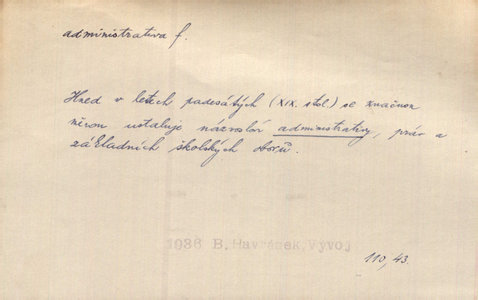 administrativa f.
Hned v letech padesátých (XIX. stol.) se značnou
měrou ustaluje názvosloví administrativy, práv a
základních školských oborů.
1936 B. Havránek, Vývoj
110, 43.